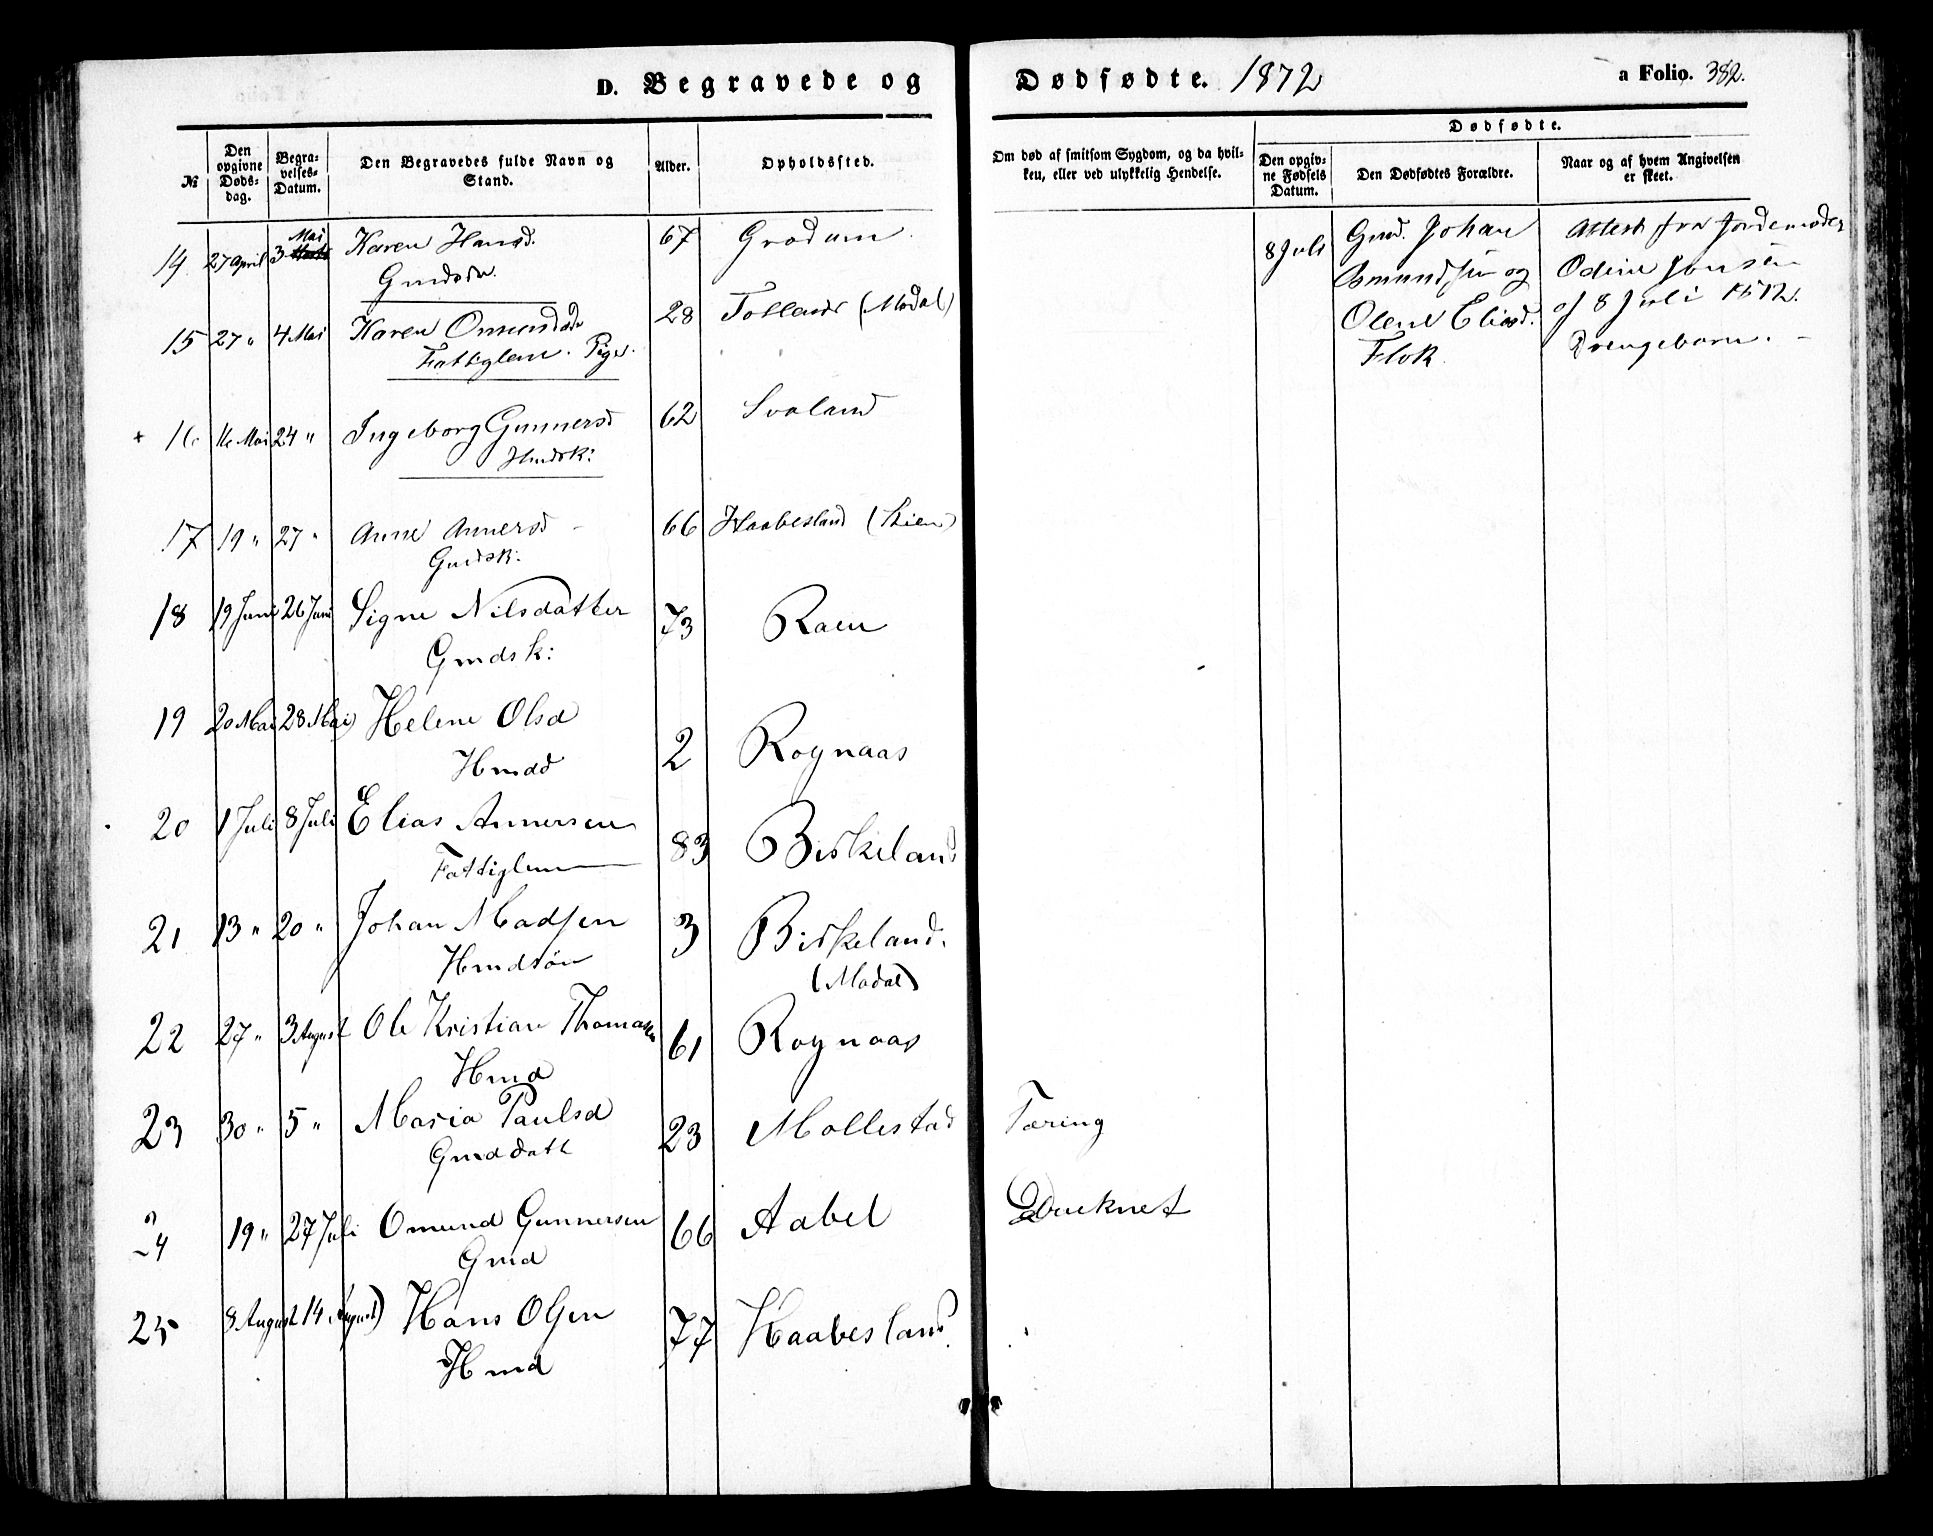 D. Begravede og Dødfødte. 1872
a Folio. 382.
№
Den opgivne Døds-dag.
Begra-velses-Datum.
Den Begravedes fulde Navn og Stand.
Alder.
Opholdssted.
Om død af smitsom Sygdom, og da hvil-ken, eller ved ulykkelig Hendelse.
Dødfødte.
Den opgiv-ne Fødsels Datum.
Den Dødfødtes Forældre.
Naar og af hvem Angivelsen er skeet.
14 27 April 3 Mai Karen Hansd. 67 Grødum.
15 27 " 4 Mai Karen Omundsd 28 (Modal)
Fattiglem. Pige.
16 16 Mai 24 " Ingeborg Gunnersd 62 Svaland
Hmdsk:
17 19 " 27 " Anne Annersd 66 Haabesland (Skien)
Gmdsk:
18 19 Juni 26 Juni Signe Nilsdatter 73 Raen
Gmdsk:
19 20 Mai 28 Mai Helene Olsd 2 Rognaas
Hmdd
20 1 Juli 8 Juli Elias Annersen 83 Birkeland
Fattiglem
21 13 " 20 " Johan Madsen 3 Birkeland.
Hmdsön (Modal)
22 27 " 3 August Ole Kristian Thomassen 61 Rognaas
Hmd
23 30 " 5 " Maria Paulsd 23 Mollestad Tæring
Gmddatt
24 19 " 27 Juli Omund Gunnersen 66 Aabel Drucknet
Gmd
25 8 August 14 August Hans Olsen 77 Haabesland.
Hmd
8 Juli
Gmd. Johan
Osmundsen og
Olene Eliasd.
Flok
Attest fra Jordemoder
Odine Jensen
af 8 Juli 1872.
Drengebarn.